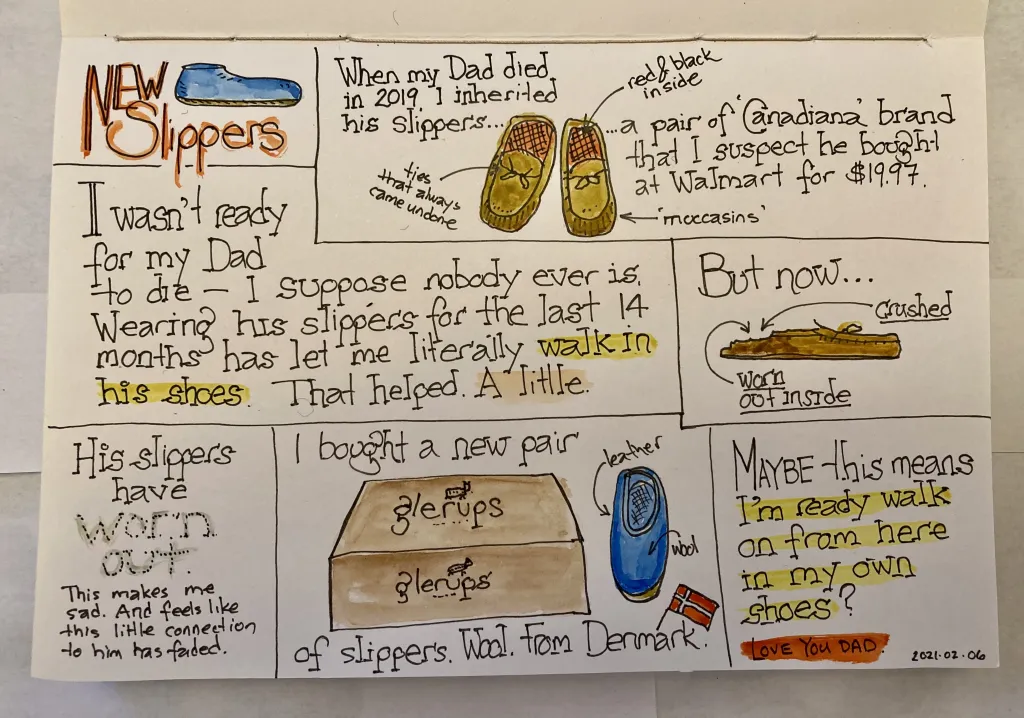 NEW
Slippers
When my Dad died
in 2019, I inherited
his slippers...
red & black
inside
...a pair of 'Canadiana' brand
that I suspect he bought
at Walmart for $19.97.
ties
that always
came undone
'moccasins'
I wasn't ready
for my Dad
to die — I suppose nobody ever is.
Wearing his slippers for the last 14
months has let me literally walk in
his shoes. That helped. A little.
But now...
crushed
worn
out inside
His slippers
have
worn
out.
This makes me
sad. And feels like
this little connection
to him has faded.
I bought a new pair
glerups
glerups
leather
wool
of slippers. Wool. From Denmark.
MAYBE this means
I'm ready walk
on from here
in my own
shoes?
LOVE YOU DAD.
2021.02.06